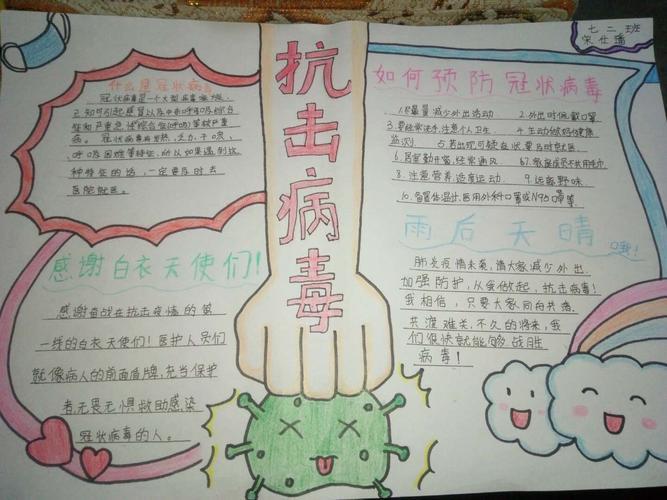 七二班
宋仕璠
抗击病毒
什么是冠状病毒
冠状病毒是一个大型病毒家族,
已知可引起感冒以及中东呼吸综合
征和严重急性呼吸综合征等较严重
病。冠状病毒病发热、乏力、干咳、
呼吸困难等特征,所以如果遇到此
种特征的话,一定要及时去
医院就医。
感谢白衣天使们!
感谢奋战在抗击疫情的第
一线的白衣天使们!医护人员们
就像病人的前面盾牌,充当保护
者,无畏无惧救助感染
冠状病毒的人。
如何预防冠状病毒
1.尽量减少外出活动 2.外出时佩戴口罩
3.要经常洗手,注意个人卫生 4.主动做好健康
监测 5.若出现可疑症状,要及时就医
6.居室勤开窗,经常通风 7.家庭成员不共用毛巾
8.注意营养,适度运动 9.远离野味
10.备置体温计,医用外科口罩或N95口罩等
雨后天晴
肺炎疫情来袭,请大家减少外出,
加强防护,从我做起,抗击病毒!
我相信,只要大家同舟共济,
共渡难关,不久的将来,我
们很快就能够战胜
病毒!